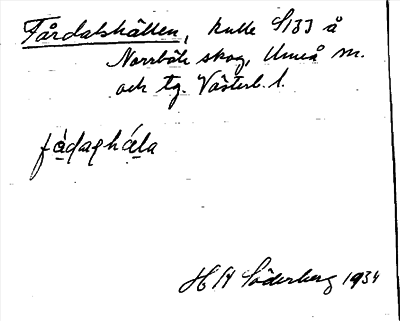 Fårdalshällen, kulle S133 å
Norrböle skog, Umeå m.
och tg. Västerb. l.
fá̱daghá̱la
H A Söderberg 1934